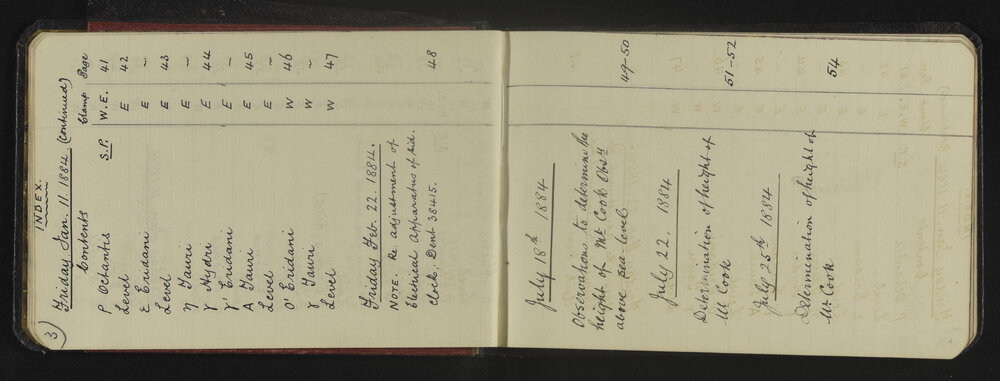 3
INDEX.
Friday Jan. 11. 1884. (Continued)
Contents Clamp Page
ρ Octantis S.P. W.E. 41
Level E 42
ε Eridani E ~
Level E 43
η Tauri E ~
γ Hydri E 44
γ' Eridani E ~
A Tauri E 45
Level E ~
O' Eridani W 46
γ Tauri W ~
Level W 47
Friday Feb. 22. 1884.
NOTE. Re. adjustment of
Electrical Apparatus of Sid.
Clock. Dent 38415. 48
July 18th 1884
Observations to determine the
height of Mt Cook Obsy
above sea level 49-50
July 22. 1884
Determination of height of
Mt Cook 51-52
July 25th 1884
Determination of height of
Mt Cook 54